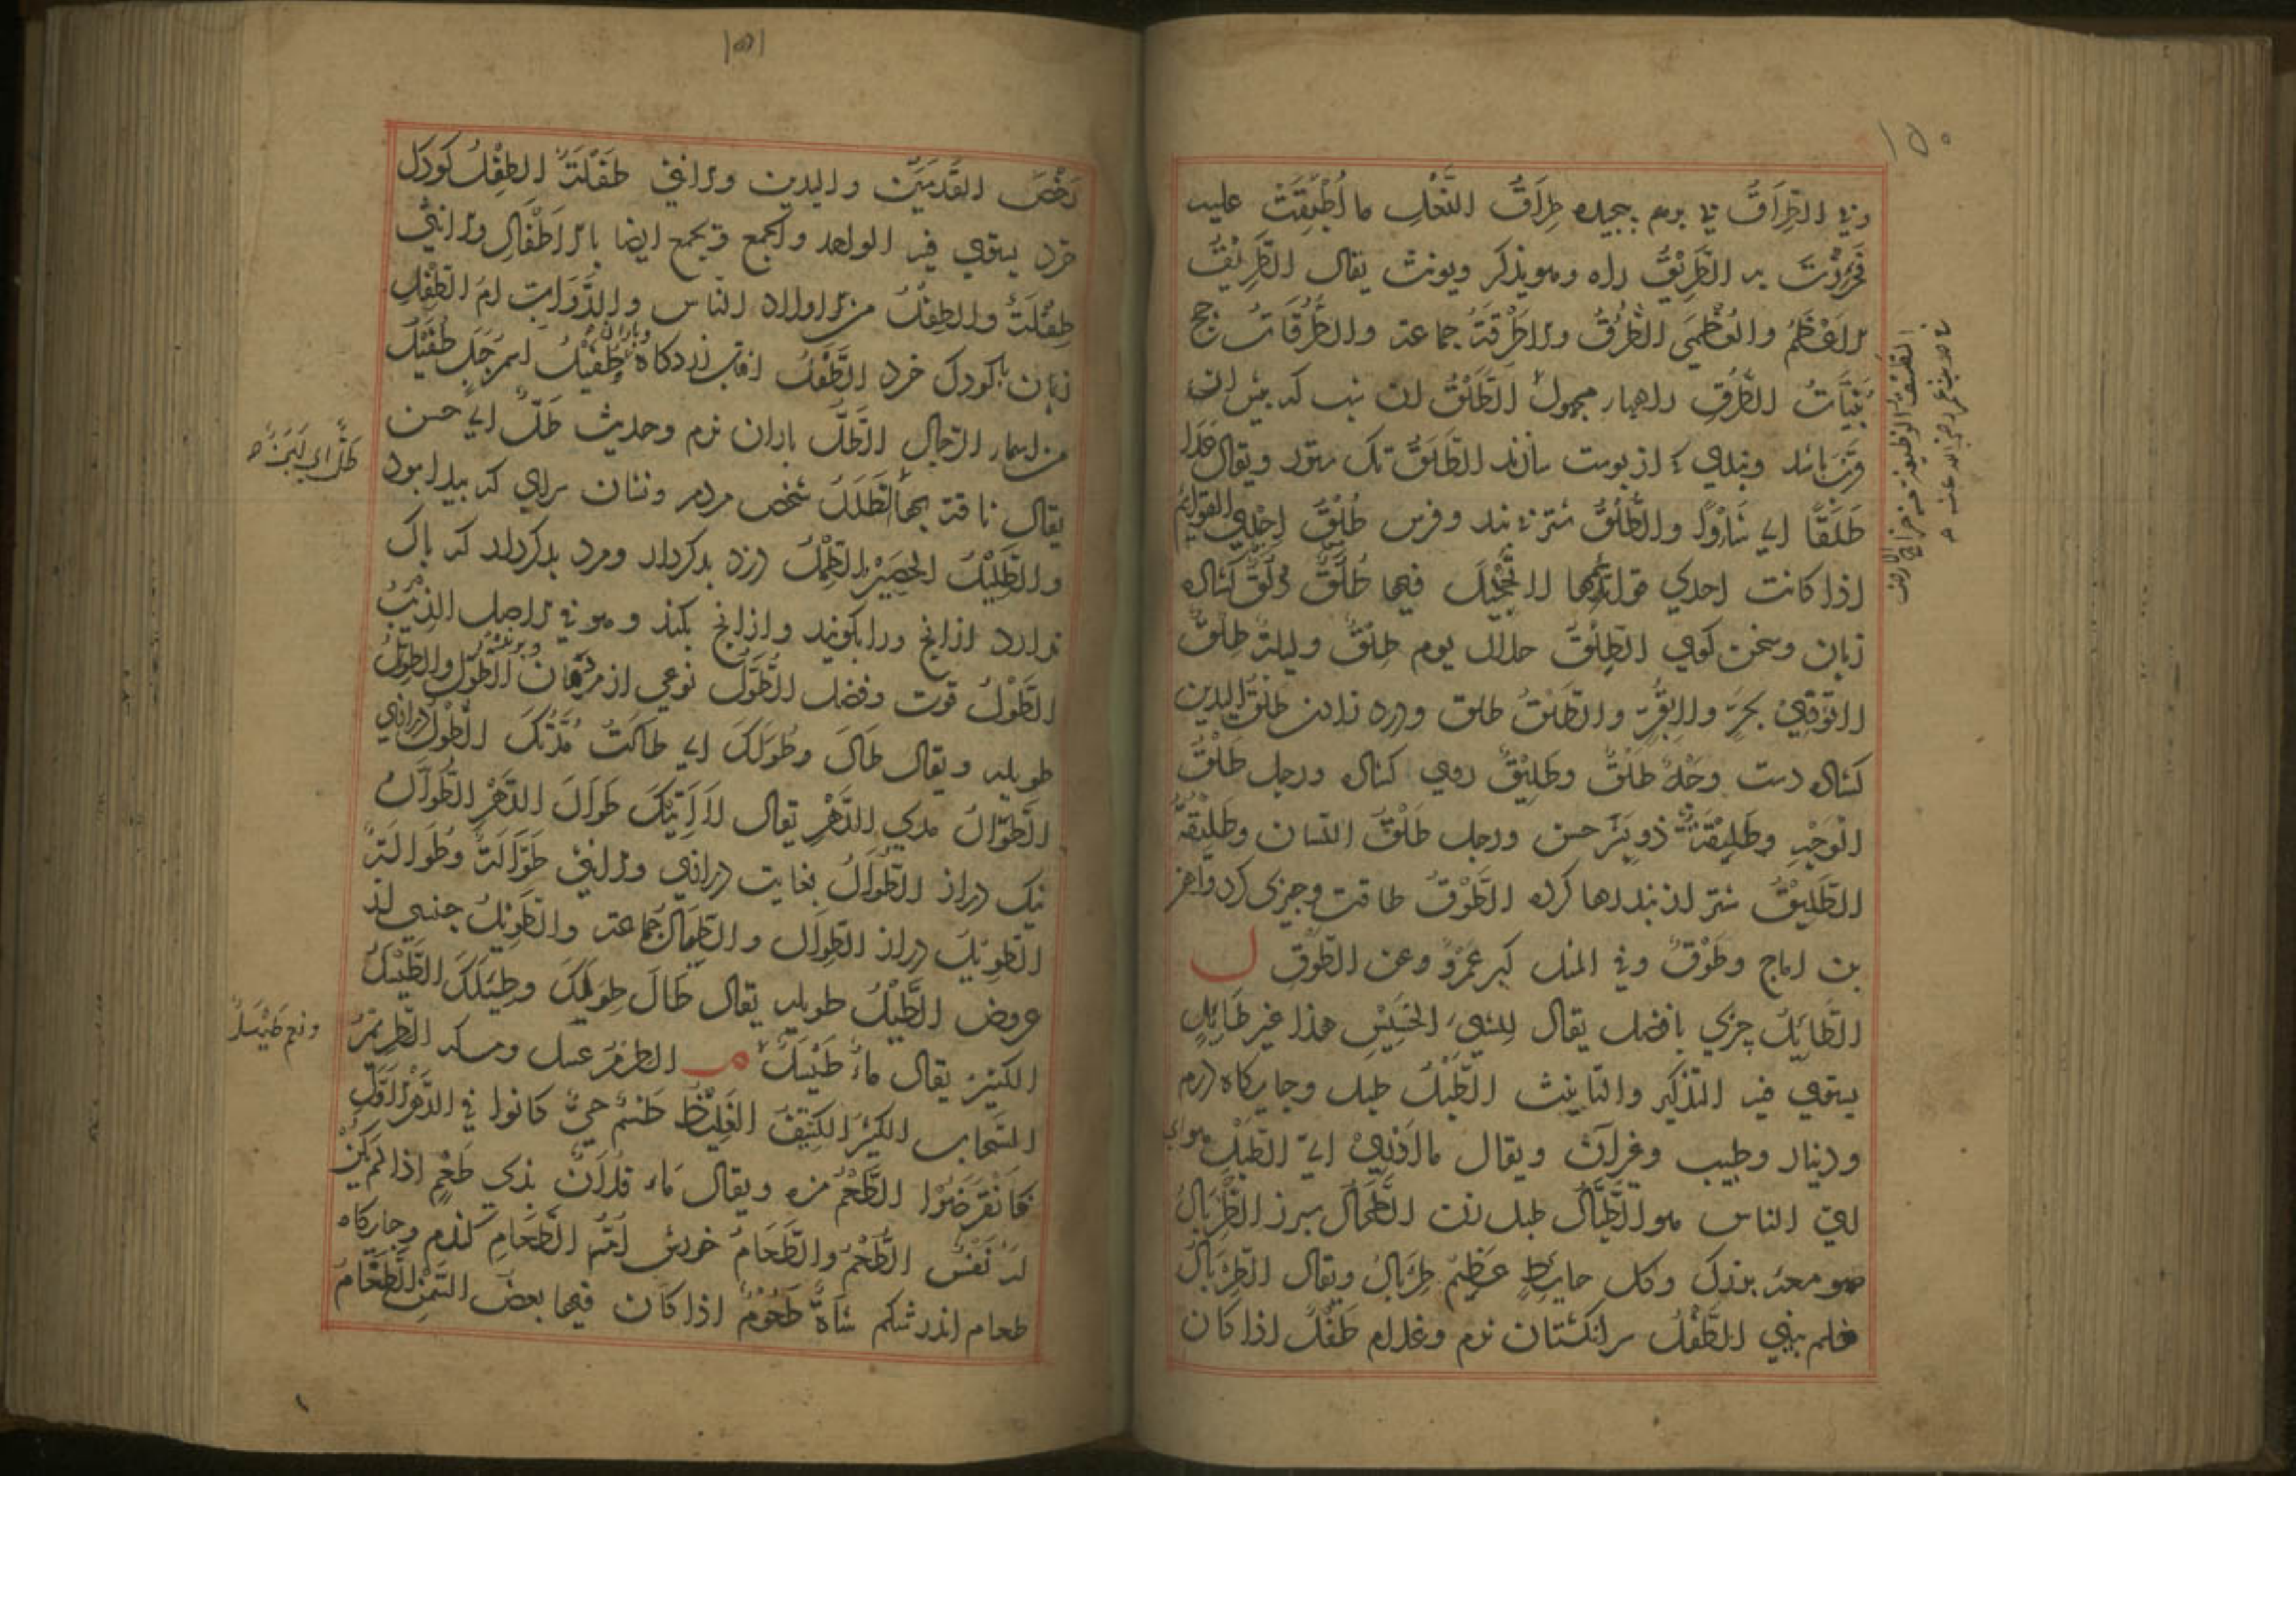 ١٥٠
وفي الطِّرَاقُ تا برم بجيده طِرَاقُ النَّعْلِ ما أُطْبِقَتْ عليه
فَخُرِزَتْ به الطَّرِيْقُ راه وهو يذكر ويونث يقال الطَّرِيْقُ
الاَعْظَمُ والعُظْمَى الطُّرُقُ والاَطْرِقَةُ جماعة والطُّرُقَاتُ جج
بُنَيَّاتُ الطُّرُقِ راههاء مجهول الطَّلْقُ
باشد وبندي كه از پوست الطَّلَقُ تك ستور ويقال عَدَا
طَلَقًا اي شَأْوًا والطُّلُقُ شتر بي بند وفرس طُلُقٌ اِحْدَي القوائم
اذا كانت احدي قوائمها لا تَحْجِيْلَ فيها طُلَقٌ ذُلَقٌ كشاده
زبان وسخن كوي الطِّلْقُ حلال يوم طَلْقٌ وليلة طَلْقٌ
لا تؤذي بحَرٍّ ولا بقُرٍّ والطَّلْقُ طلق ودرد زادن طَلْقُ اليدين
كشاده دست وَجْهٌ طَلْقٌ وطَلِيْقٌ روي كشاده ورجل طَلْقُ
الوَجْهِ وطَلِيْقَةٌ ذو بِشْرٍ حسن ورجل طَلْقُ اللسان وطَلِيْقُهُ
الطَّلِيْقُ شتر از بند رها كرده الطَّوْقُ طاقت وچيزي كرد
وطَوْقٌ وفي المثل كبر عَمْرٌو وعن الطَّوْقِ ل
الطَّائِلُ چيزي با فضل يقال للشيء الخَسِيْسِ هذا غير طَائِلٍ
يستوي فيه التذكير والتانيث الطَّبْلُ طبل وجايكاه درم
ودينار وطيب وغيرآن ويقال ما ادري ايّ الطَّبْلِ هواي
ايّ الناس هو الطَّبَّالُ طبل زن الطِّحَالُ سپرز الطِّرْبَالُ
صومعه بزرك وكل حايطٍ عَظِيْمٍ طِرْبَالٌ ويقال الطِّرْبَالُ
علم يبنى الطَّفْلُ سر انكشتان نرم وغلام طَفْلٌ اذا كان
١٥١
رَخْصَ القَدَمَيْنِ واليدين والانثي طَفْلَةٌ الطِّفْلُ كودك
خرد يستوي فيه الواحد والجمع وَيجمع ايضا بالاَطْفَالِ والانثي
طِفْلَةٌ والطِّفْلُ من اولاد الناس والدَّوَابِّ اُمُّ الطِّفْلِ
زنان با كودك خرد الطَّفَلُ افتاب زردكاه وباران طُفَيْلٌ اسم رَجُلٍ طُفَيْلٌ
من اسماء الرجال الطَّلُّ باران نرم وحديث طَلٌّ اي حسن
يقال ناقة بها الطَّلَلُ شخص مردم ونشان سراي كه پيدا بود
والطَّلِيْلُ الحَصِيْرُ الطِّمْلُ دزد بدكردار ومرد بدكردار كه باك
ندارد از انچ ورا بكويند واز انچ بكند وهو في الاصل الذِّئْبُ
الطَّوْلُ قوت وفضل الطُّوَّلُ نوعي از مرغان الطِّوَلُ والطِّيَلُ
طويله ويقال طَالَ طُوَلُكَ اي طَالَتْ مُدَّتُكَ الطُّوْلُ درازي
الطَّوَالُ مدي الدَّهْرِ يقال لا آتِيْكَ طَوَالَ الدَّهْرِ الطُّوَّالُ
نيك دراز الطُّوَالُ بغايت درازي والانثي طُوَّالَةٌ وطُوَالَةٌ
الطَّوِيْلُ دراز الطِّوَالُ والطِّيَالُ جماعة والطَّوِيْلُ جنسي از
عروض الطِّيْلُ طويله يقال طَالَ طِوَلُكَ وطِيَلُكَ الطَّيْسَلُ
الكثير يقال ماءٌ طَيْسَلٌ م الطرم عسل ومسكه الطِّرْيَمُ
السَّحَابُ الكثيرُ الكَثِيْفُ الغَلِيْظُ طَسْمٌ حيٌّ كانوا في الدَّهْرِ الاَوَّلِ
فَانْقَرَضُوْا الطَّعْمُ مزه ويقال ما فلانٌ بذي طَعْمٍ اذا لم يكن
له نَفْسٌ الطُّعْمُ والطَّعَامُ خورش اُمُّ الطَّعَامِ كندم وجايكاه
طعام اندر شكم شَاةٌ طَعُوْمٌ اذا كان فيها بعض السِّمَنِ الطَّغَامُ
ونعم طَيْسَلٌ